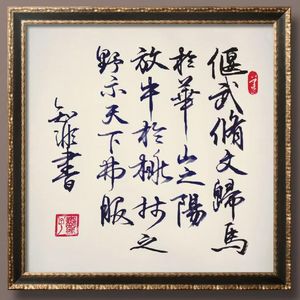 偃武脩文歸馬
於華山之陽
放牛於桃林之
野示天下弗服
知非書